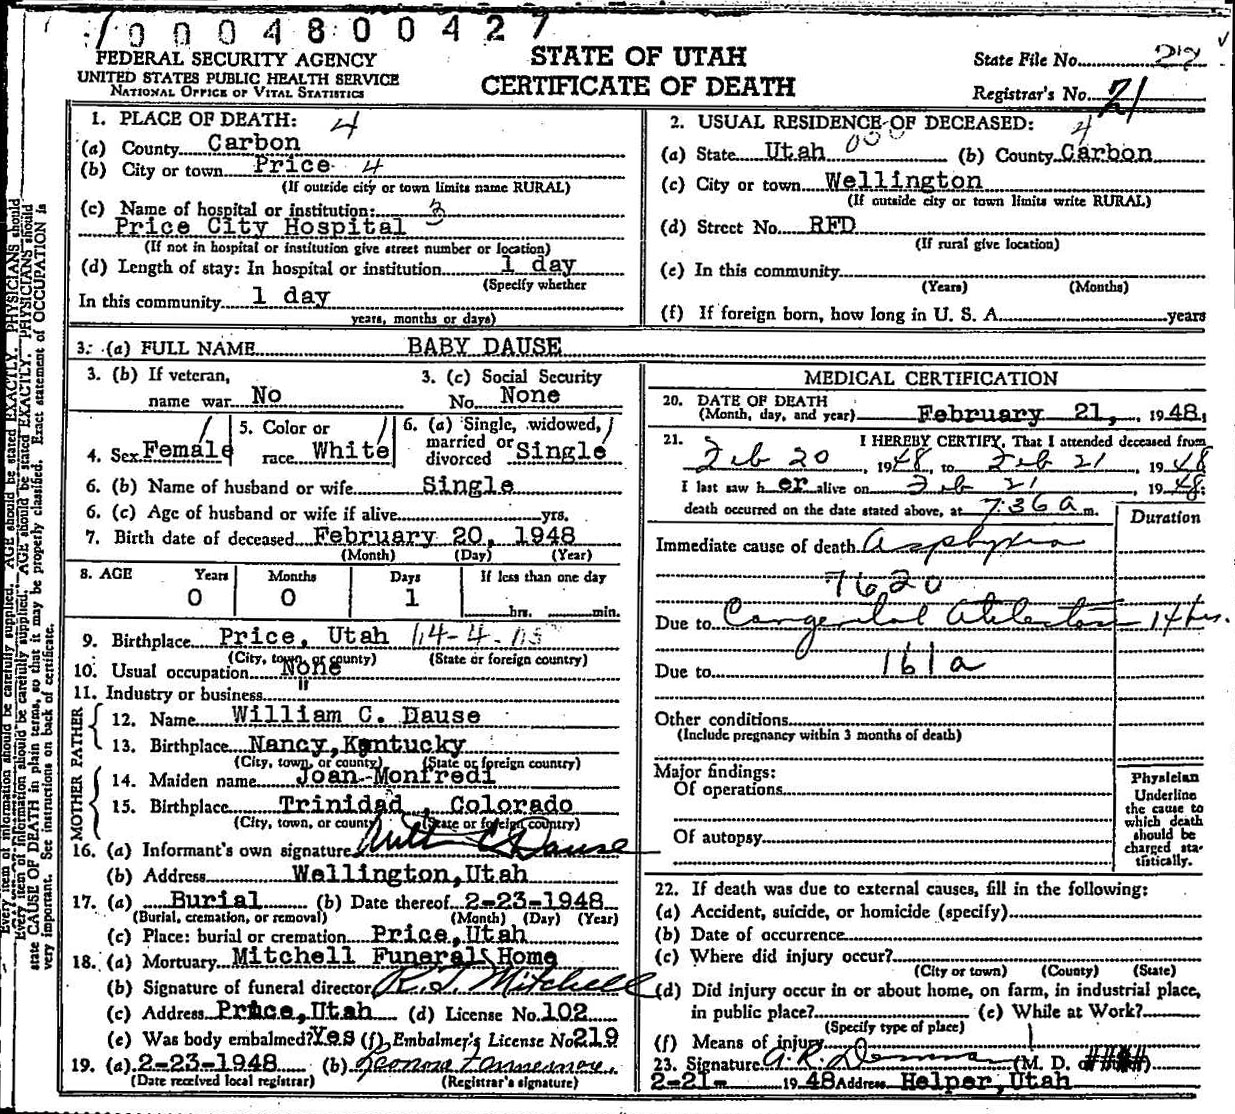 10004800427
FEDERAL SECURITY AGENCY
UNITED STATES PUBLIC HEALTH SERVICE
NATIONAL OFFICE OF VITAL STATISTICS
STATE OF UTAH
CERTIFICATE OF DEATH
State File No.
Registrar's No. 21
1. PLACE OF DEATH: 4
(a) County Carbon
(b) City or town Price 4
(If outside city or town limits name RURAL)
(c) Name of hospital or institution: 3
Price City Hospital
(If not in hospital or institution give street number or location)
(d) Length of stay: In hospital or institution 1 day
(Specify whether
In this community 1 day
years, months or days)
2. USUAL RESIDENCE OF DECEASED: 4
(a) State Utah 000 (b) County Carbon
(c) City or town Wellington
(If outside city or town limits write RURAL)
(d) Street No. RFD
(If rural give location)
(e) In this community
(Years) (Months)
(f) If foreign born, how long in U. S. A. years
3. (a) FULL NAME BABY DAUSE
3. (b) If veteran,
name war No
3. (c) Social Security
No. None
4. Sex Female
5. Color or
race White
6. (a) Single, widowed,
married or
divorced Single
6. (b) Name of husband or wife Single
6. (c) Age of husband or wife if alive yrs.
7. Birth date of deceased February 20, 1948
(Month) (Day) (Year)
8. AGE Years Months Days If less than one day
0 0 1 hrs. min.
9. Birthplace Price, Utah
(City, town, or county) (State or foreign country)
10. Usual occupation None
11. Industry or business "
FATHER
12. Name William C. Dause
13. Birthplace Nancy, Kentucky
(City, town, or county) (State or foreign country)
MOTHER
14. Maiden name Joan Monfredi
15. Birthplace Trinidad, Colorado
(City, town, or county (State or foreign country)
16. (a) Informant's own signature William C Dause
(b) Address Wellington, Utah
17. (a) Burial (b) Date thereof 2-23-1948
(Burial, cremation, or removal) (Month) (Day) (Year)
(c) Place: burial or cremation Price, Utah
18. (a) Mortuary Mitchell Funeral Home
(b) Signature of funeral director Mitchell
(c) Address Price, Utah (d) License No. 102
(e) Was body embalmed? Yes (f) Embalmer's License No 219
19. (a) 2-23-1948 (b)
(Date received local registrar) (Registrar's signature)
MEDICAL CERTIFICATION
20. DATE OF DEATH
(Month, day, and year) February 21, 1948.
21. I HEREBY CERTIFY, That I attended deceased from
Feb 20, 1948, to Feb 21, 1948
I last saw her alive on Feb 21, 1948:
death occurred on the date stated above, at 7:36 a m.
Duration
Immediate cause of death Asphyxia
7620
Due to Congenital Atelectasis 14 hrs.
Due to 161a
Other conditions
(Include pregnancy within 3 months of death)
Major findings:
Of operations
Of autopsy
Physician
Underline
the cause to
which death
should be
charged sta-
tistically.
22. If death was due to external causes, fill in the following:
(a) Accident, suicide, or homicide (specify)
(b) Date of occurrence
(c) Where did injury occur?
(City or town) (County) (State)
(d) Did injury occur in or about home, on farm, in industrial place,
in public place? (e) While at Work?
(Specify type of place)
(f) Means of injury
23. Signature A. R. Demman (M. D. or ####)
2-21- 1948 Address Helper, Utah
Every item of information should be carefully supplied. AGE should be stated EXACTLY. PHYSICIANS should
state CAUSE OF DEATH in plain terms, so that it may be properly classified. Exact statement of OCCUPATION is
very important. See instructions on back of certificate.